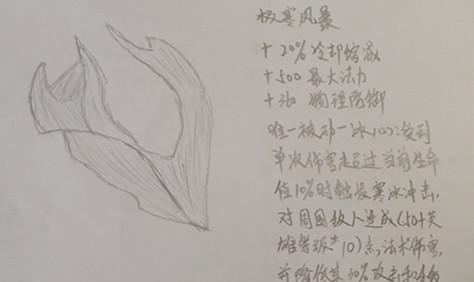 极寒风暴
+20%冷却缩减
+500最大法力
+360物理防御
唯一被动-冰心:受到
单次伤害超过当前生命
值10%时触发寒冰冲击,
对周围敌人造成(50+英
雄等级*10)点法术伤害,
并降低其30%攻击和移